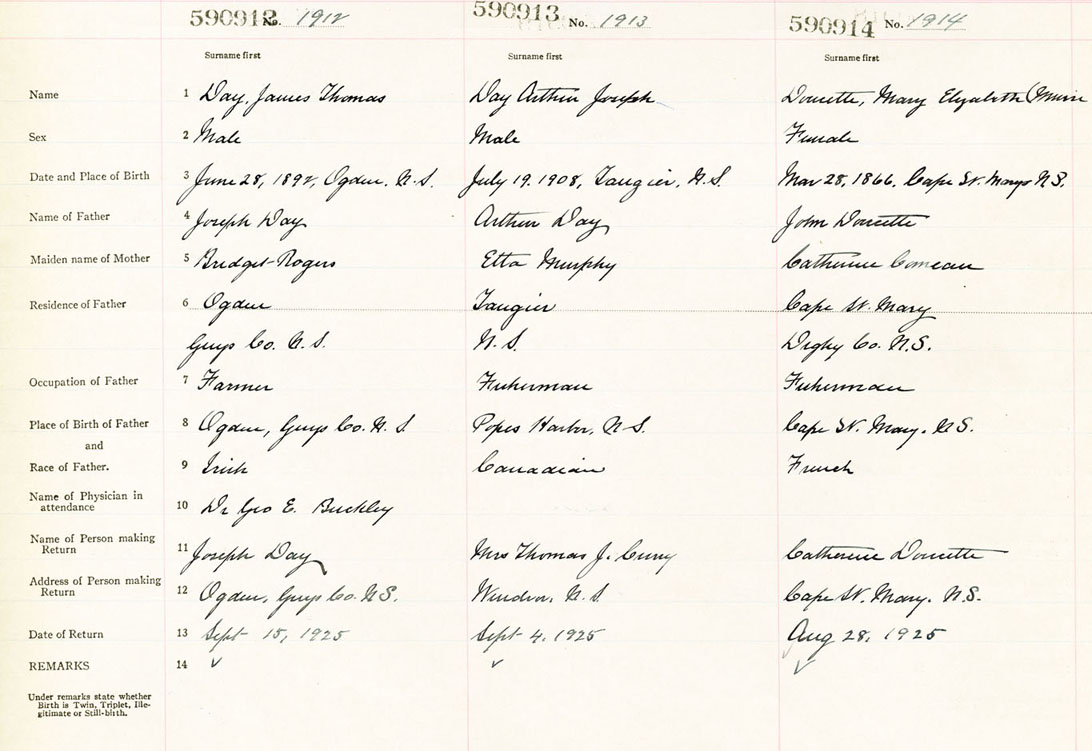 590912 No. 1912 590913 No. 1913 590914 No. 1914
Surname first Surname first Surname first
Name 1 Day, James Thomas Day Arthur Joseph Doucette, Mary Elizabeth
Sex 2 Male Male Female
Date and Place of Birth 3 June 28, 1892, Ogden, N.S. July 19, 1908, Tangier, N.S. Mar 28, 1866, Cape St. Marys N.S.
Name of Father 4 Joseph Day Arthur Day John Doucette
Maiden name of Mother 5 Bridget Rogers Etta Murphy Catherine Comeau
Residence of Father 6 Ogden Tangier Cape St. Mary
Guys Co. N.S. N.S. Digby Co. N.S.
Occupation of Father 7 Farmer Fisherman Fisherman
Place of Birth of Father 8 Ogden, Guys Co. N.S Popes Harbor, N-S. Cape St. Mary. N.S.
and
Race of Father. 9 Irish Canadian French
Name of Physician in
attendance 10 Dr Geo E. Buckley
Name of Person making
Return 11 Joseph Day Mrs Thomas J. Curry Catherine Doucette
Address of Person making
Return 12 Ogden, Guys Co. N.S. Windsor, N.S Cape St. Mary. N.S.
Date of Return 13 Sept 15, 1925 Sept 4, 1925 Aug 28, 1925
REMARKS 14 ✓ ✓ ✓
Under remarks state whether
Birth is Twin, Triplet, Ille-
gitimate or Still-birth.